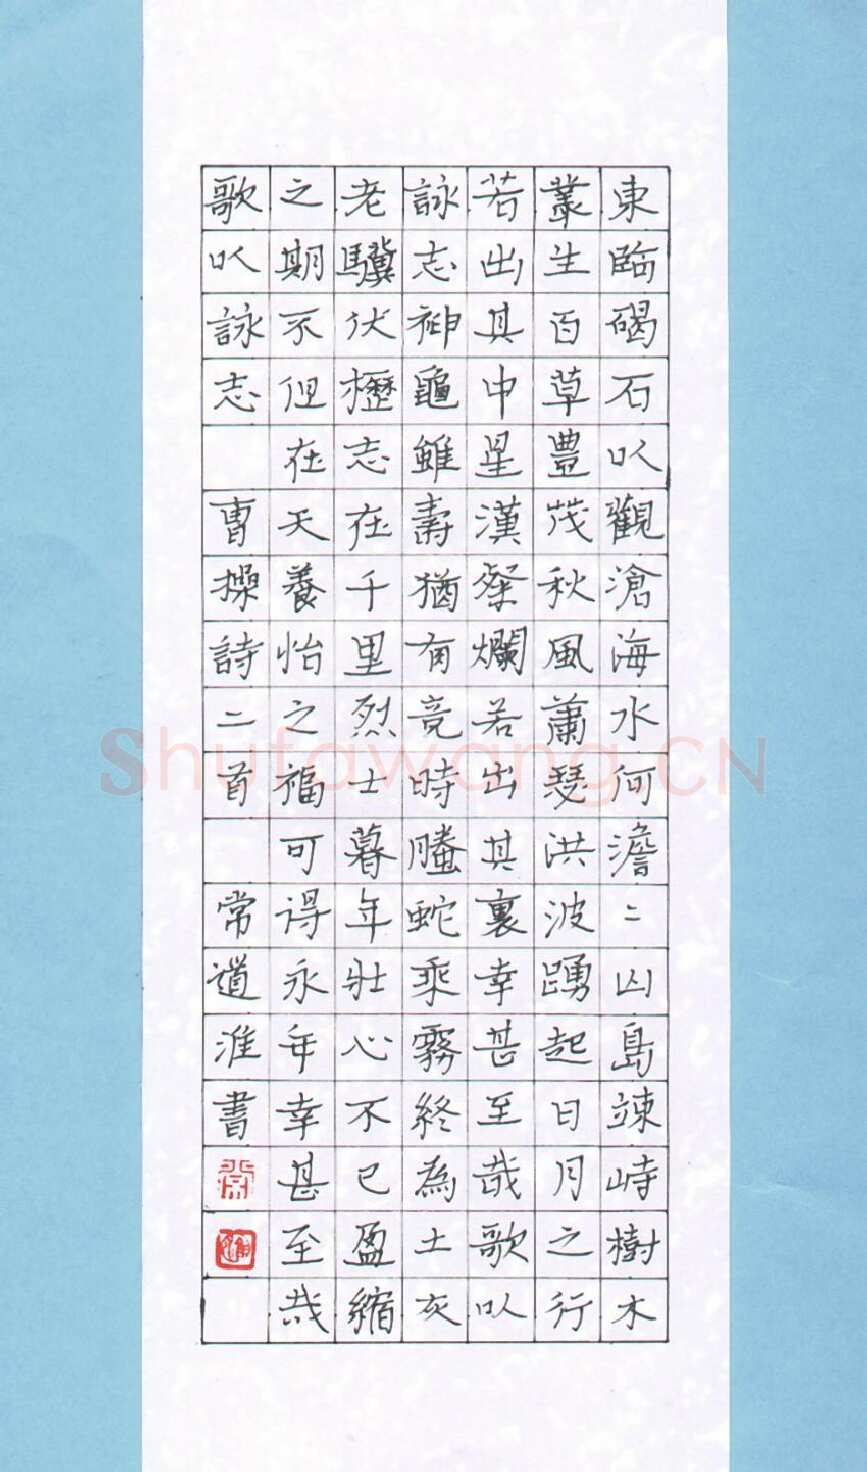 東臨碣石以觀滄海水何澹二山島竦峙樹木
叢生百草豐茂秋風蕭瑟洪波踴起日月之行
若出其中星漢粲爛若出其裏幸甚至哉歌以
詠志神龜雖壽猶有竟時螣蛇乘霧終為土灰
老驥伏櫪志在千里烈士暮年壯心不已盈縮
之期不但在天養怡之福可得永年幸甚至哉
歌以詠志 曹操詩二首 常道淮書
Shufawang.CN